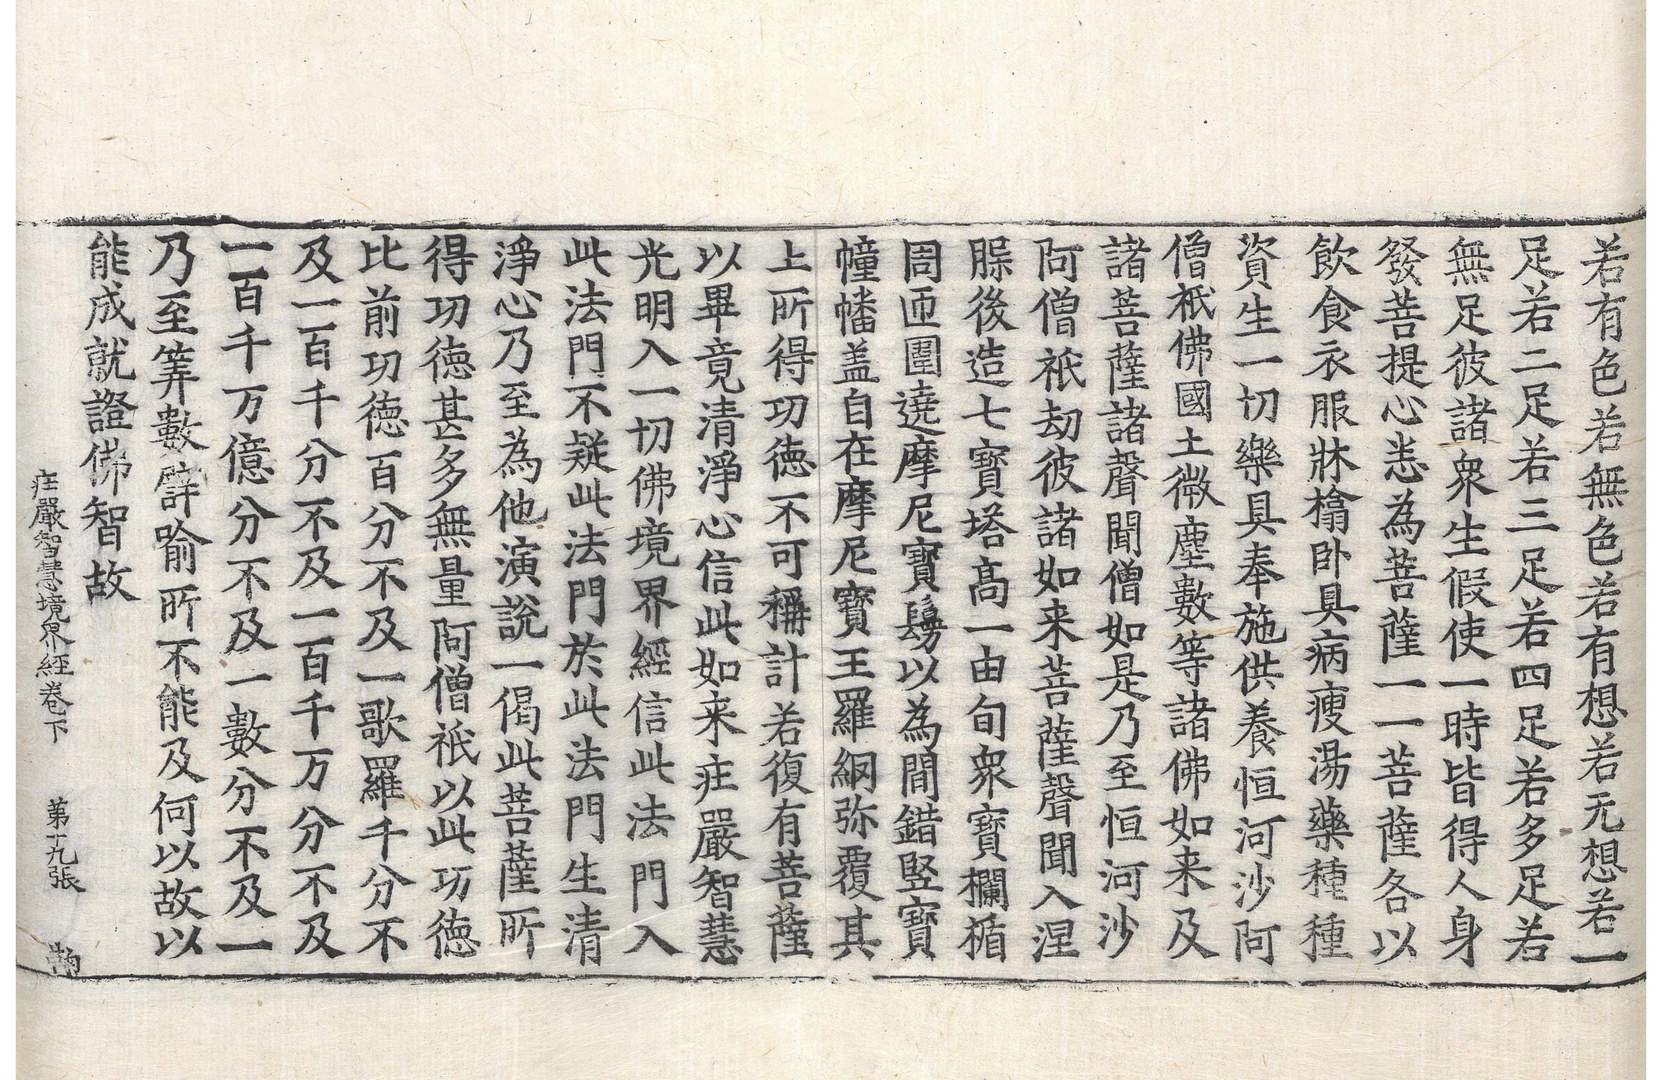 若有色若無色若有想若无想若一
足若二足若三足若四足若多足若
無足彼諸衆生假使一時皆得人身
發菩提心恙為菩薩一一菩薩各以
飲食衣服牀榻卧具病瘦湯藥種種
資生一切樂具奉施供養恒河沙阿
僧祇佛國土微塵數等諸佛如来及
諸菩薩諸聲聞僧如是乃至恒河沙
阿僧祇劫彼諸如来菩薩聲聞入涅
槃後造七寳塔髙一由旬衆寳欄楯
周匝圍遶摩尼寳鬘以為閒錯竪寳
幢幡盖自在摩尼寳王羅網弥覆其
上所得功徳不可稱計若復有菩薩
以畢竟清淨心信此如来庄嚴智慧
光明入一切佛境界經信此法門入
此法門不疑此法門於此法門生清
淨心乃至為他演說一偈此菩薩所
得功徳甚多無量阿僧祇以此功徳
比前功徳百分不及一歌羅千分不
及一百千分不及一百千万分不及
一百千万億分不及一數分不及一
乃至筭數譬喻所不能及何以故以
能成就證佛智故
庄嚴智慧境界經卷下 第十九張